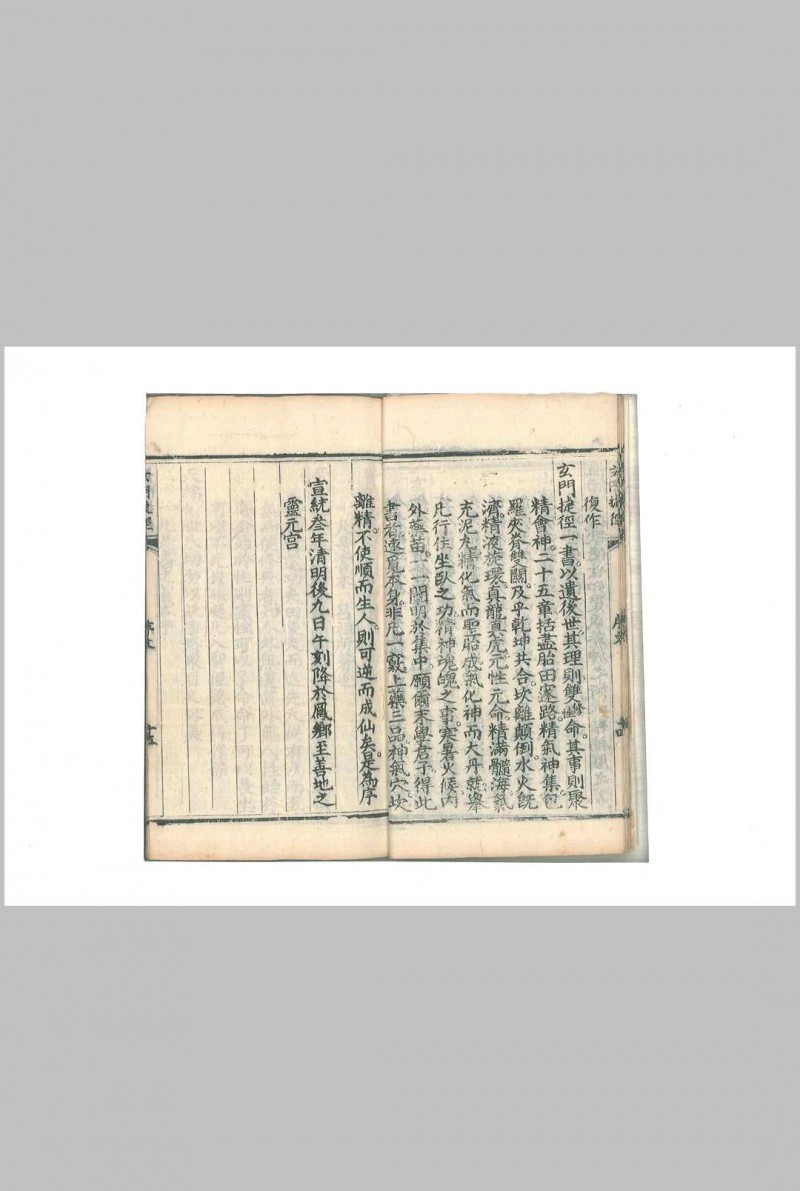 復作
玄門捷徑一書。以遺後世。其理則雙修性命。其事則聚
精會神。二十五章括盡胎田寧路。精氣神集包
羅。夾脊雙關。及乎乾坤共合。坎離顛倒。水火既
濟。精液旋環。真龍真虎。元性元命。精滿髓海。氣
充泥丸。精化氣而聖胎成。氣化神而大丹就。舉
凡行住坐臥之功。精神魂魄之事。寒暑火候。內
外藥苗。一一闡明於集中。願爾末學君子。得此
書者。速覓本身。非凡一竅。上藥三品。神氣穴。坎
離精。不使順而生人。則可逆而成仙矣。是為序
宣統叁年清明後九日午刻降於鳳鄉至善地之
靈元宫
玄門捷徑
序
玄門捷徑
序